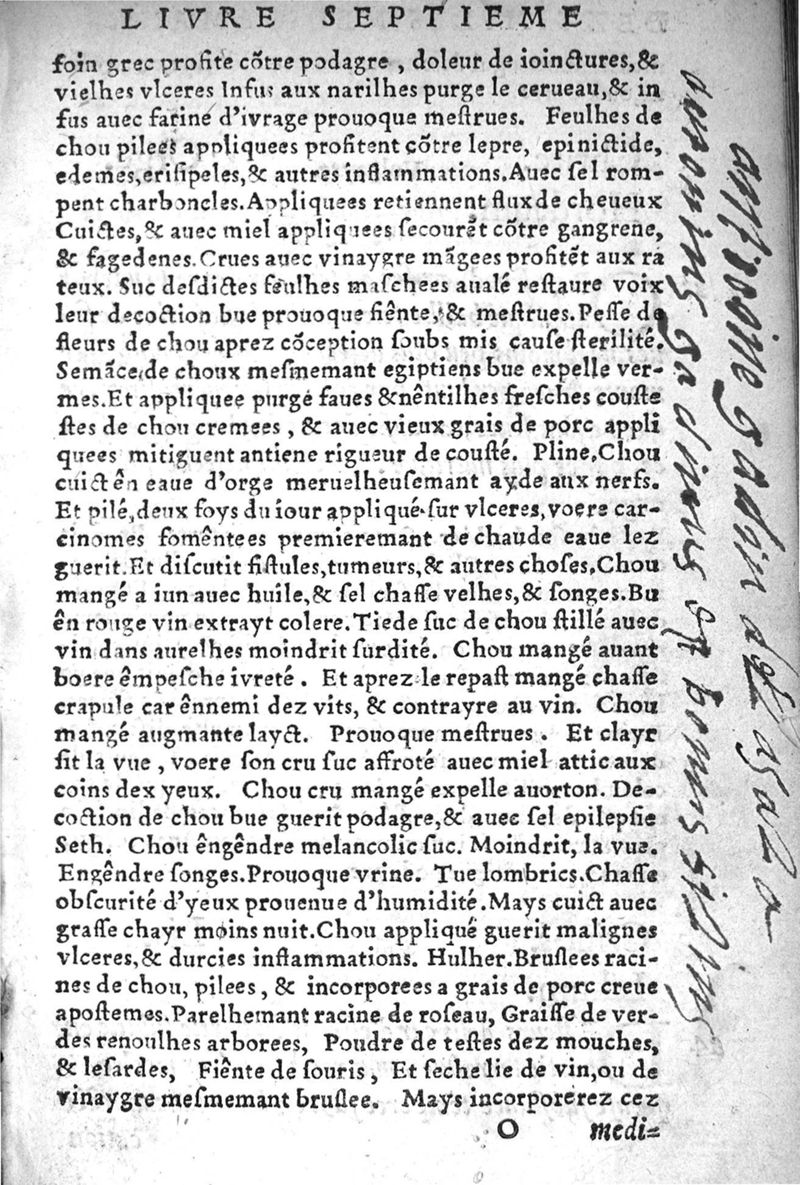 LIVRE SEPTIEME
foin grec profite cõtre podagre, doleur de ioinctures, &
vielhes vlceres Infus aux narilhes purge le cerueau, & in
fus auec farine d'ivrage prouoque meſtrues. Feulhes de
chou pilees appliquees profitent cõtre lepre, epinictide,
edemes, eriſipeles, & autres inflammations. Auec ſel rom-
pent charboncles. Appliquees retiennent flux de cheueux
Cuictes, & auec miel appliquees ſecourẽt cõtre gangrene,
& fagedenes. Crues auec vinaygre mãgees profitẽt aux ra
teux. Suc deſdictes feulhes maſchees aualé reſtaure voix
leur decoction bue prouoque fiênte, & meſtrues. Peſſe de
fleurs de chou aprez cõception ſoubs mis cauſe ſterilité.
Semãce de choux meſmemant egiptiens bue expelle ver-
mes. Et appliquee purge faues & nêntilhes freſches couſte
ſtes de chou cremees, & auec vieux grais de porc appli
quees mitiguent antiene rigueur de couſté. Pline. Chou
cuict ên eaue d'orge meruelheuſemant ayde aux nerfs.
Et pilé, deux foys du iour appliqué ſur vlceres, voere car-
cinomes fomêntees premieremant de chaude eaue lez
guerit. Et diſcutit fiſtules, tumeurs, & autres choſes. Chou
mangé a iun auec huile, & ſel chaſſe velhes, & ſonges. Bu
ên rouge vin extrayt colere. Tiede ſuc de chou ſtillé auec
vin dans aurelhes moindrit ſurdité. Chou mangé auant
boere êmpeſche ivreté. Et aprez le repaſt mangé chaſſe
crapule car ênnemi dez vits, & contrayre au vin. Chou
mangé augmante layct. Prouoque meſtrues. Et clayr
fit la vue, voere ſon cru ſuc affroté auec miel attic aux
coins dex yeux. Chou cru mangé expelle auorton. De-
coction de chou bue guerit podagre, & auec ſel epilepſie
Seth. Chou êngêndre melancolic ſuc. Moindrit, la vue.
Engêndre ſonges. Prouoque vrine. Tue lombrics. Chaſſe
obſcurité d'yeux prouenue d'humidité. Mays cuict auec
graſſe chayr moins nuit. Chou appliqué guerit malignes
vlceres, & durcies inflammations. Hulher. Bruſlees raci-
nes de chou, pilees, & incorporees a grais de porc creue
apoſtemes. Parelhemant racine de roſeau, Graiſſe de ver-
des renoulhes arborees, Poudre de teſtes dez mouches,
& leſardes, Fiênte de ſouris, Et ſeche lie de vin, ou de
vinaygre meſmemant bruſlee. Mays incorporerez cez
O medi=